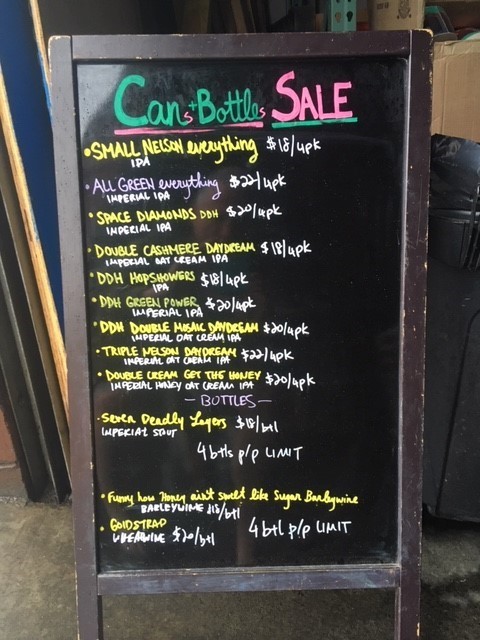 Cans + Bottles SALE
• SMALL NELSON everything $18/4pk
IPA
• ALL GREEN everything $22/4pk
IMPERIAL IPA
• SPACE DIAMONDS DDH $20/4pk
IMPERIAL IPA
• DOUBLE CASHMERE DAYDREAM $18/4pk
IMPERIAL OAT CREAM IPA
• DDH HOPSHOWERS $18/4pk
IPA
• DDH GREEN POWER $20/4pk
IMPERIAL IPA
• DDH DOUBLE MOSAIC DAYDREAM $20/4pk
IMPERIAL OAT CREAM IPA
• TRIPLE NELSON DAYDREAM $22/4pk
IMPERIAL OAT CREAM IPA
• DOUBLE CREAM GET THE HONEY $20/4pk
IMPERIAL HONEY OAT CREAM IPA
— BOTTLES —
• Seven Deadly Layers $18/btl
IMPERIAL STOUT
4 btls p/p LIMIT
• Funny how Honey ain't sweet like Sugar Barleywine
BARLEYWINE $18/btl
• GOLDSTRAP $20/btl
4 btl p/p LIMIT